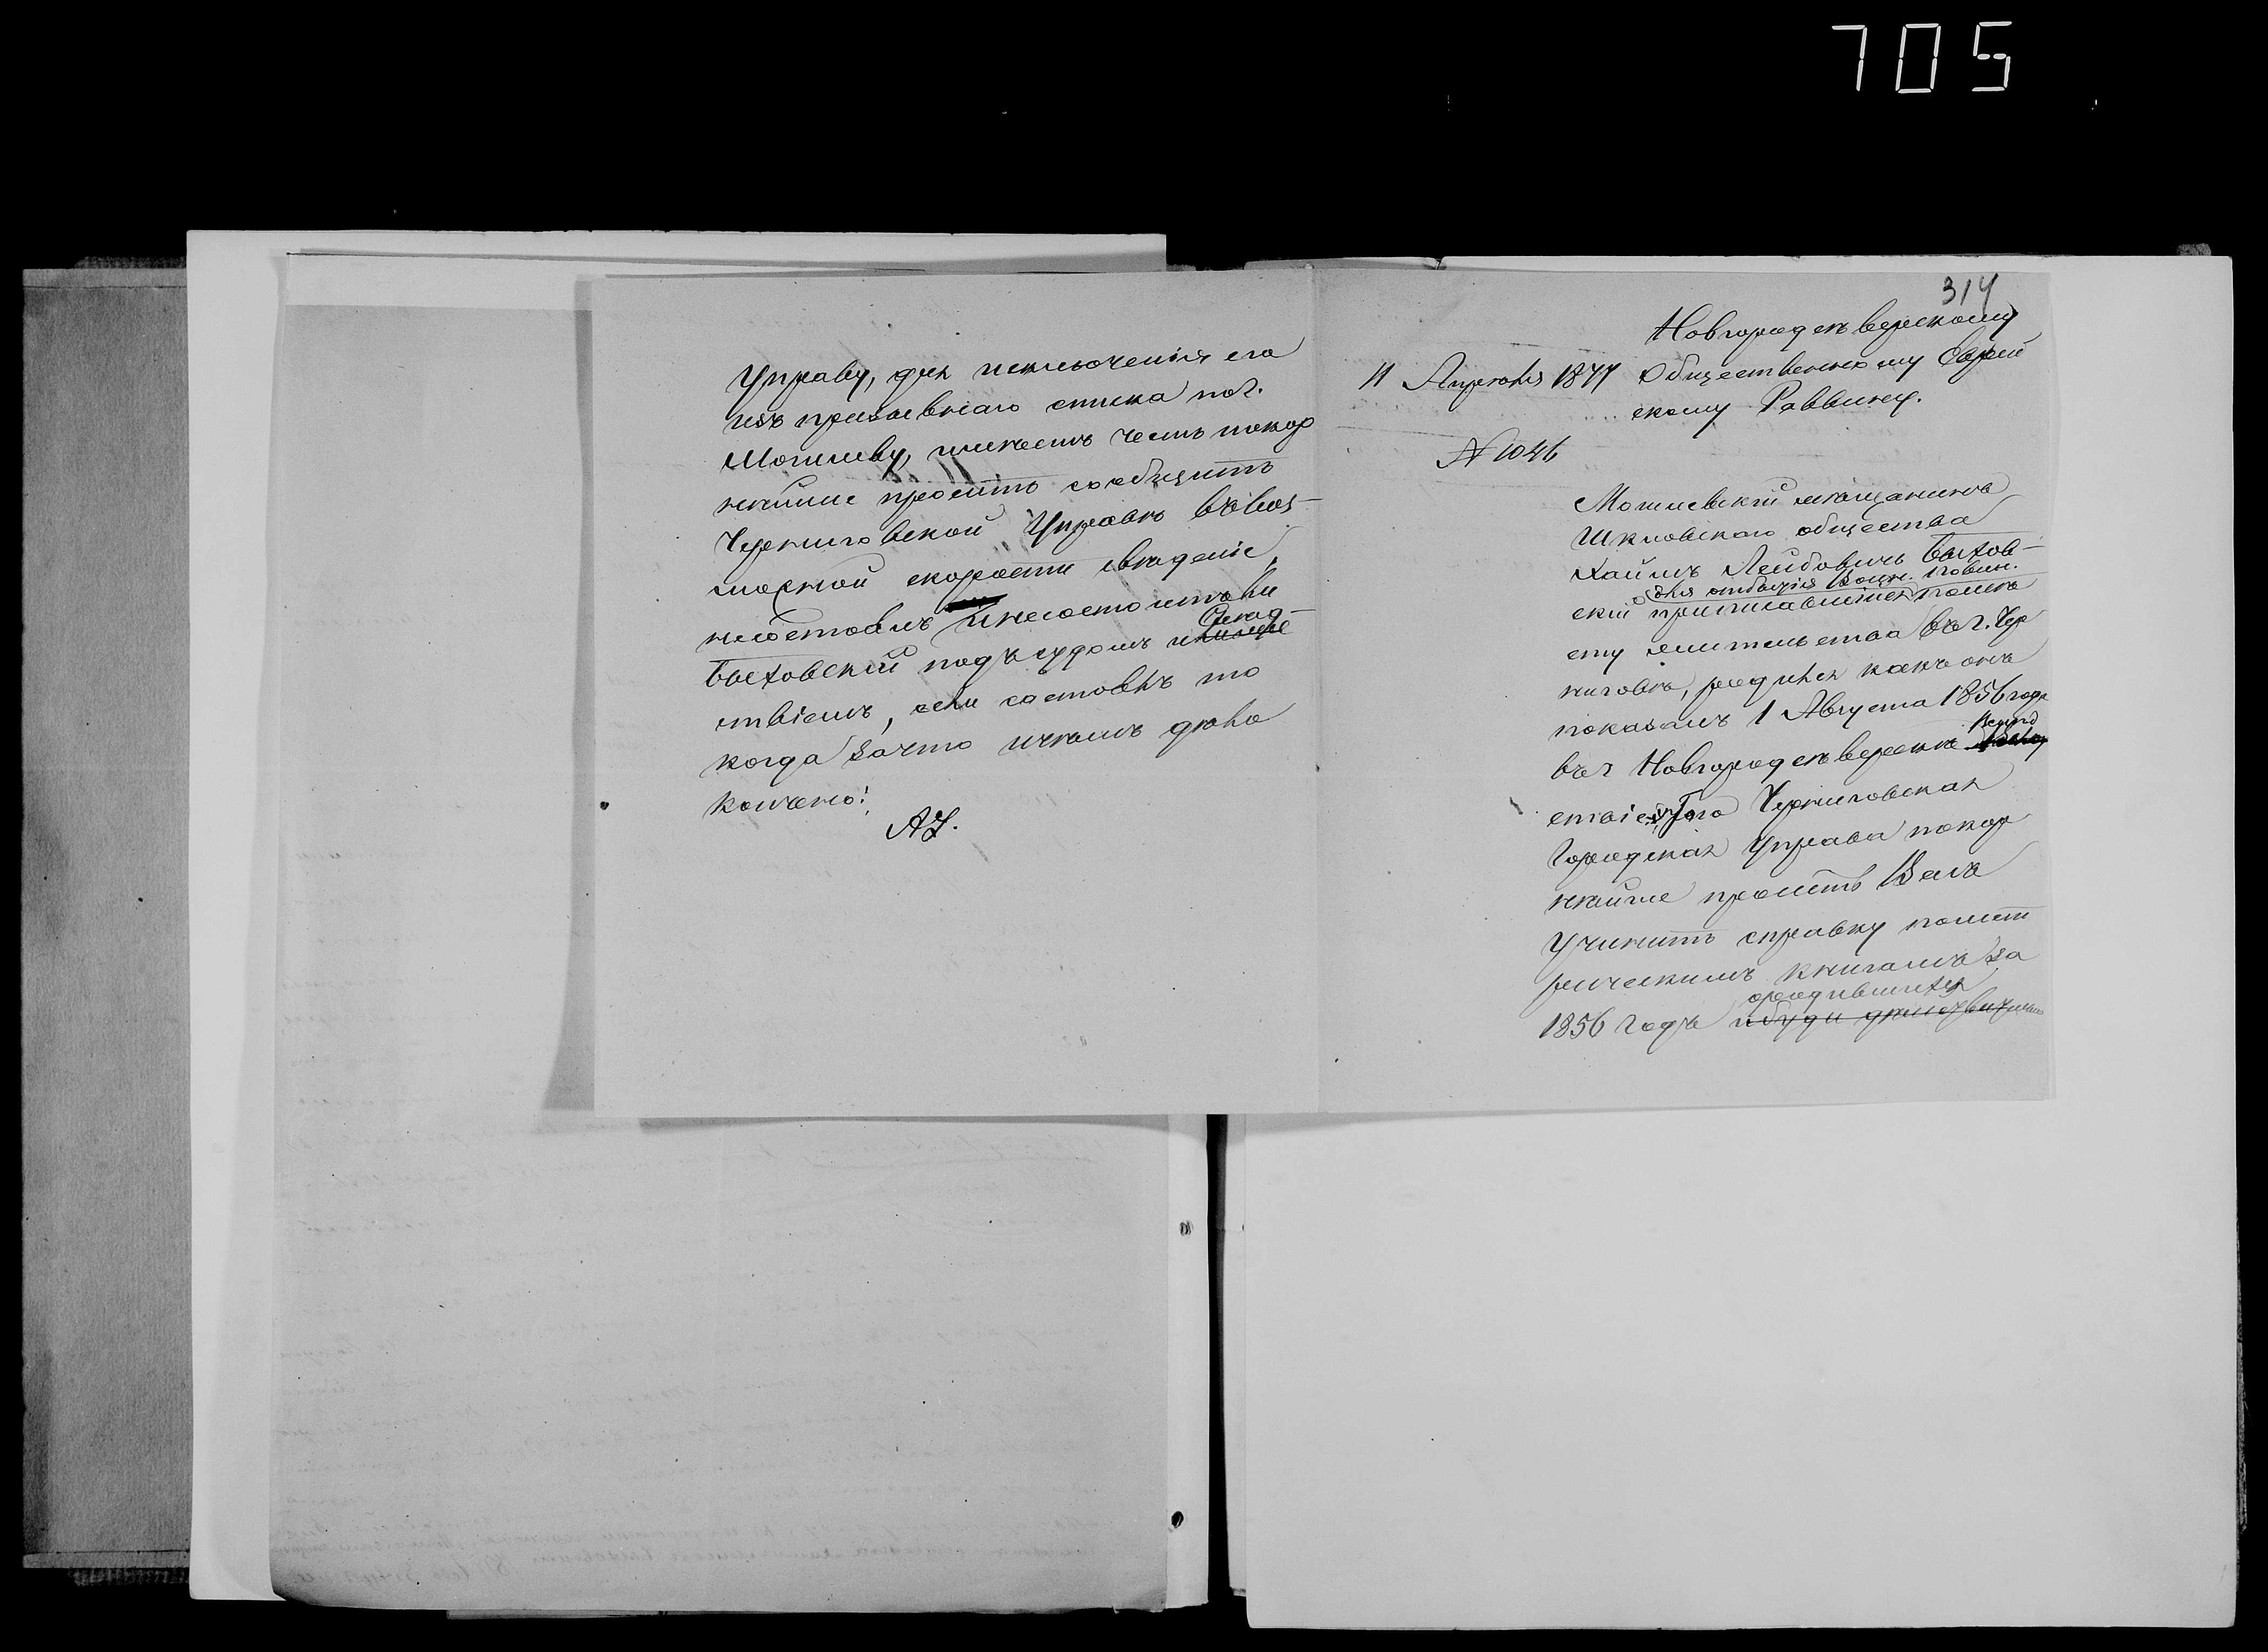 705
Управу, для исключенія его
изъ призывнаго списка по г.
Могилеву, имѣетъ честь покор
нѣйше просить сообщить
Черниговской Управѣ въ воз-
можной скорости свѣденіе,
несостоялъ и несостоитъ ли
Быховскій подъ судомъ и слѣд-
ствіемъ, если состоялъ то
когда за что и чѣмъ дѣло
кончено!
314
Новгородсѣверскому
11 Апрѣля 1877 Общественному Еврей
скому Раввину.
№ 1046
Могилевскій мѣщанинъ
Шкловскаго общества
Хаимъ Лейбовичъ Быхов-
для отбытія Воин. повин.
скій приписавшійся по мѣ
сту жительства въ г. Чер
ниговѣ, родился какъ онъ
показалъ 1 Августа 1856 года
въ г Новгородсѣверскѣ Вслѣд
ствіе того Черниговская
Городская Управа покор
нѣйше проситъ Васъ
учинить справку по мет
рическимъ книгамъ за
о родившихся
1856 годъ